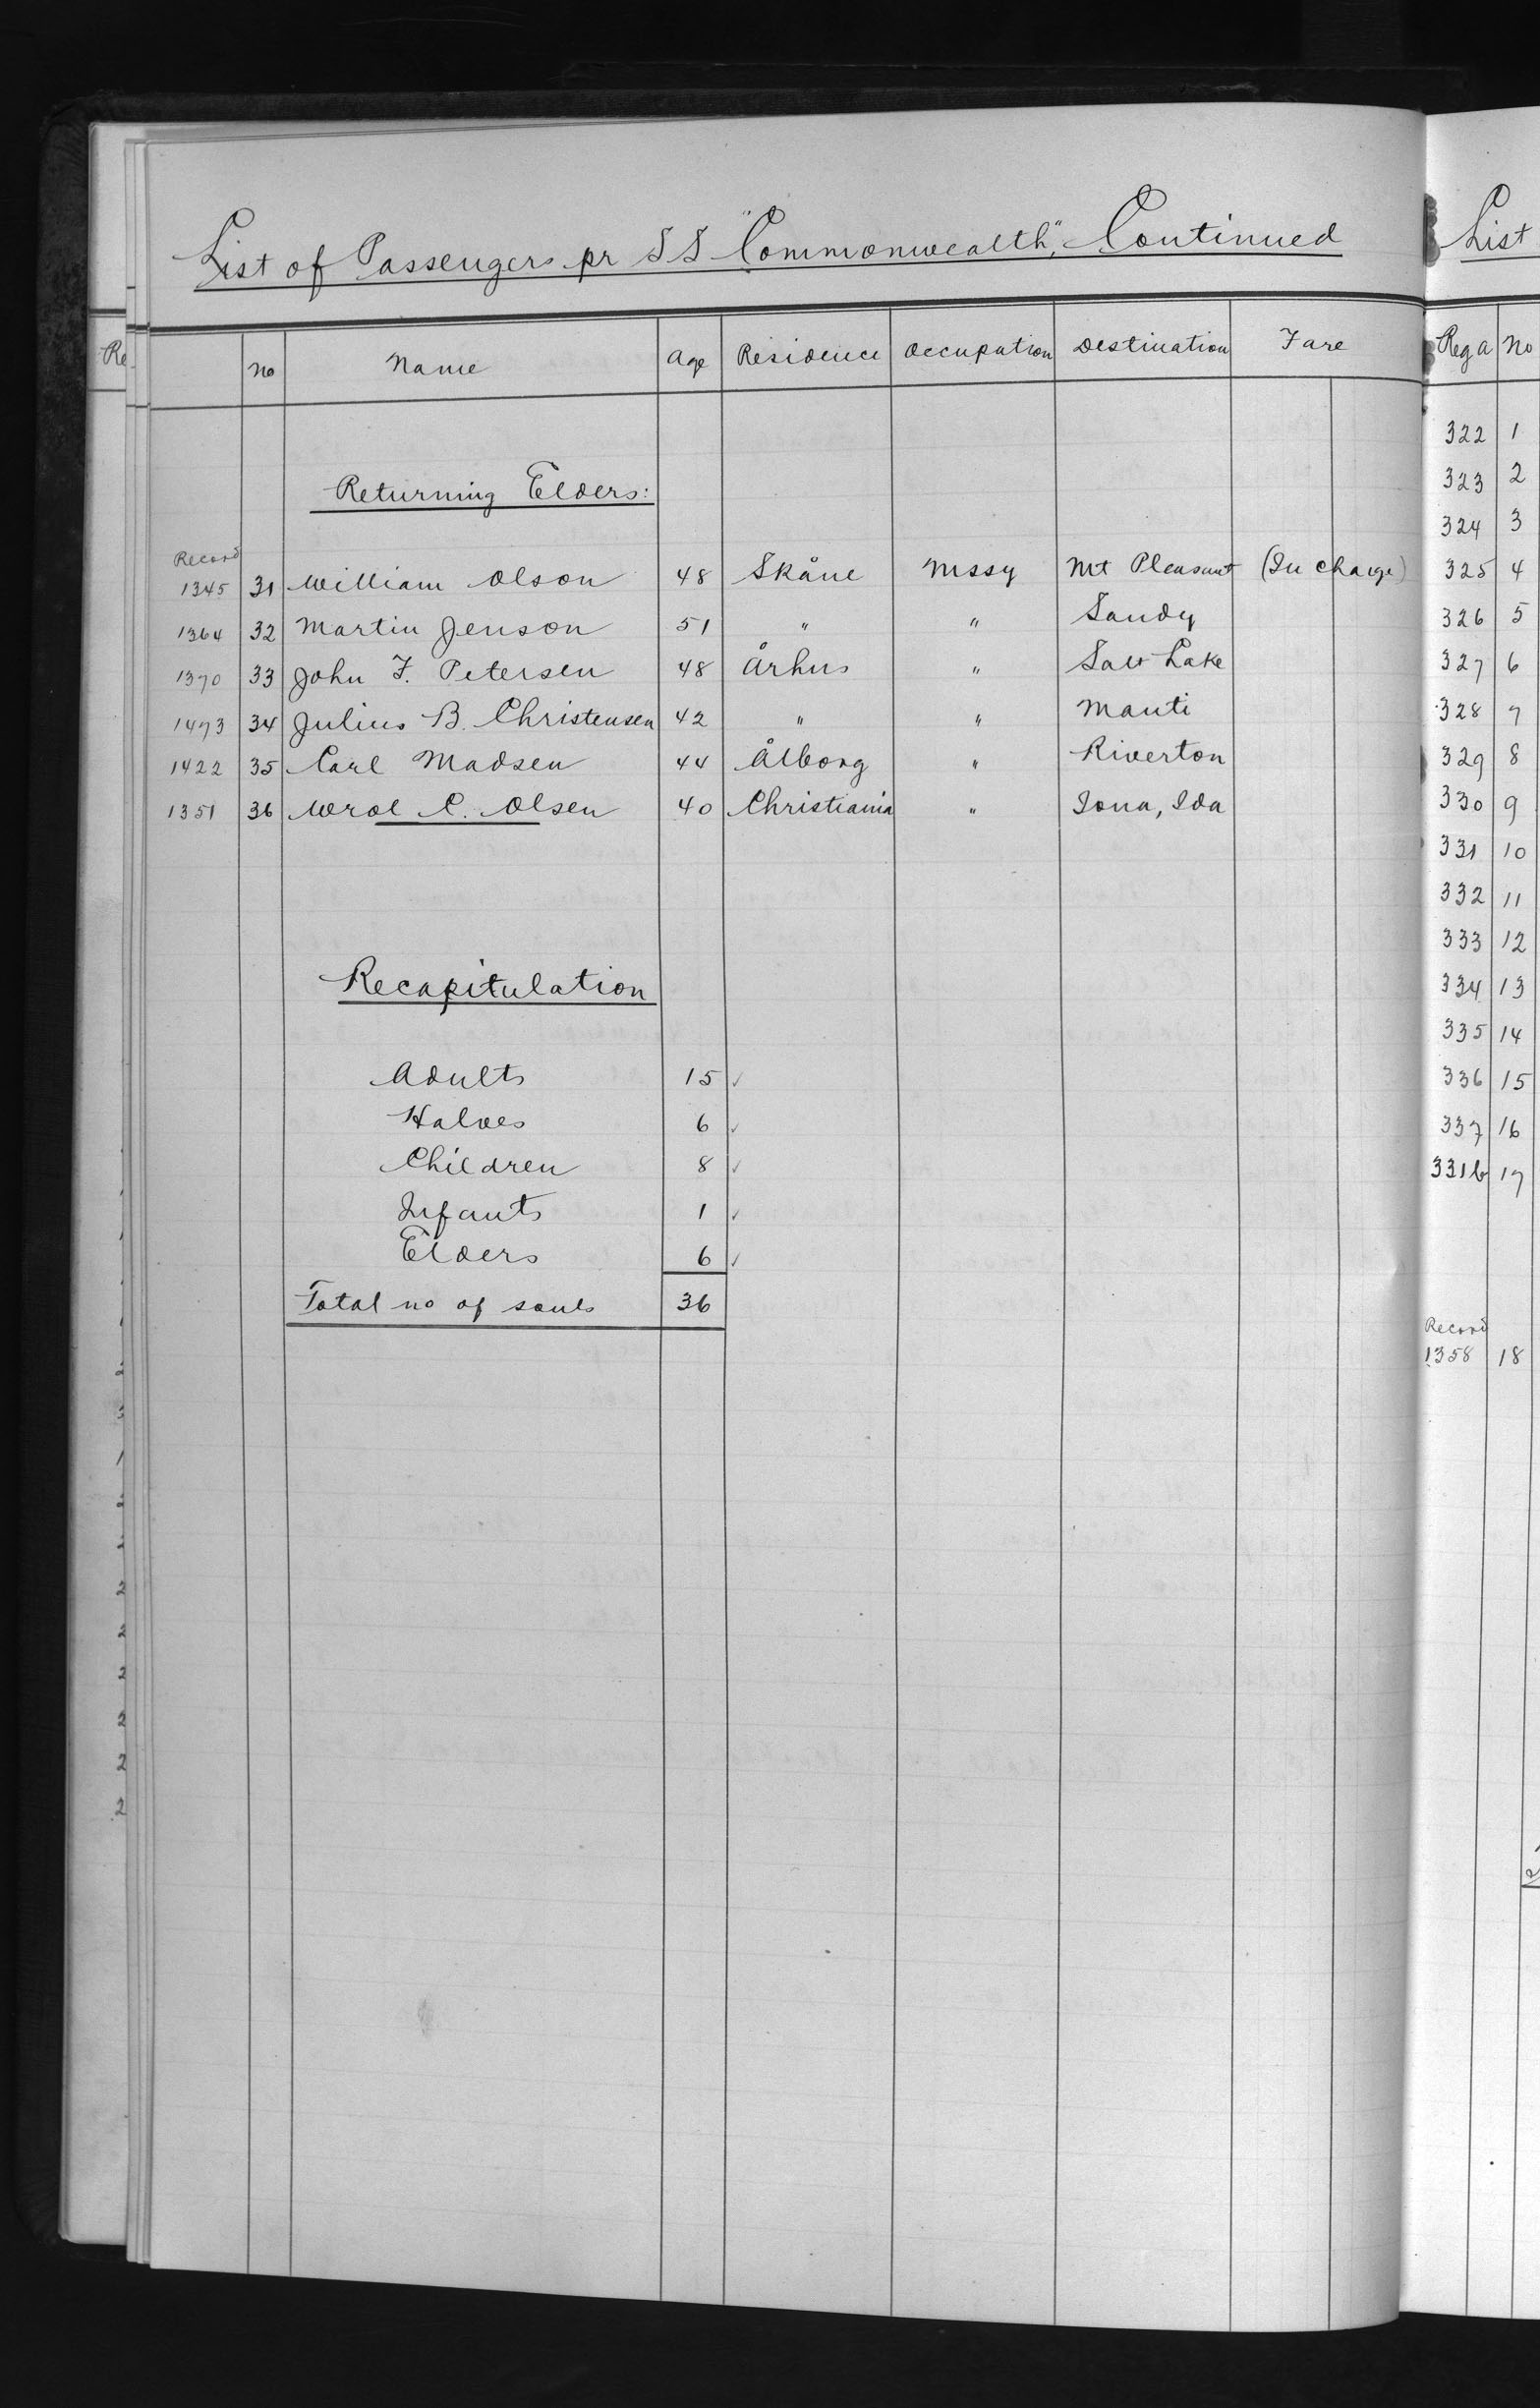 List of Passengers pr SS "Commonwealth", Continued
No Name Age Residence Occupation Destination Fare
Returning Elders:
Record
1345 31 William Olson 48 Skåne Mssy Mt Pleasant (In charge)
1364 32 Martin Jenson 51 " " Sandy
1370 33 John F. Petersen 48 Århus " Salt Lake
1473 34 Julius B. Christensen 42 " " Manti
1422 35 Carl Madsen 44 Ålborg " Riverton
1351 36 C. Olsen 40 Christiania " Iona, Ida
Recapitulation
Adults 15 ✓
Halves 6 ✓
Children 8 ✓
Infants 1 ✓
Elders 6 ✓
Total no of souls 36
List
Reg a No
322 1
323 2
324 3
325 4
326 5
327 6
328 7
329 8
330 9
331 10
332 11
333 12
334 13
335 14
336 15
337 16
331b 17
Record
1358 18